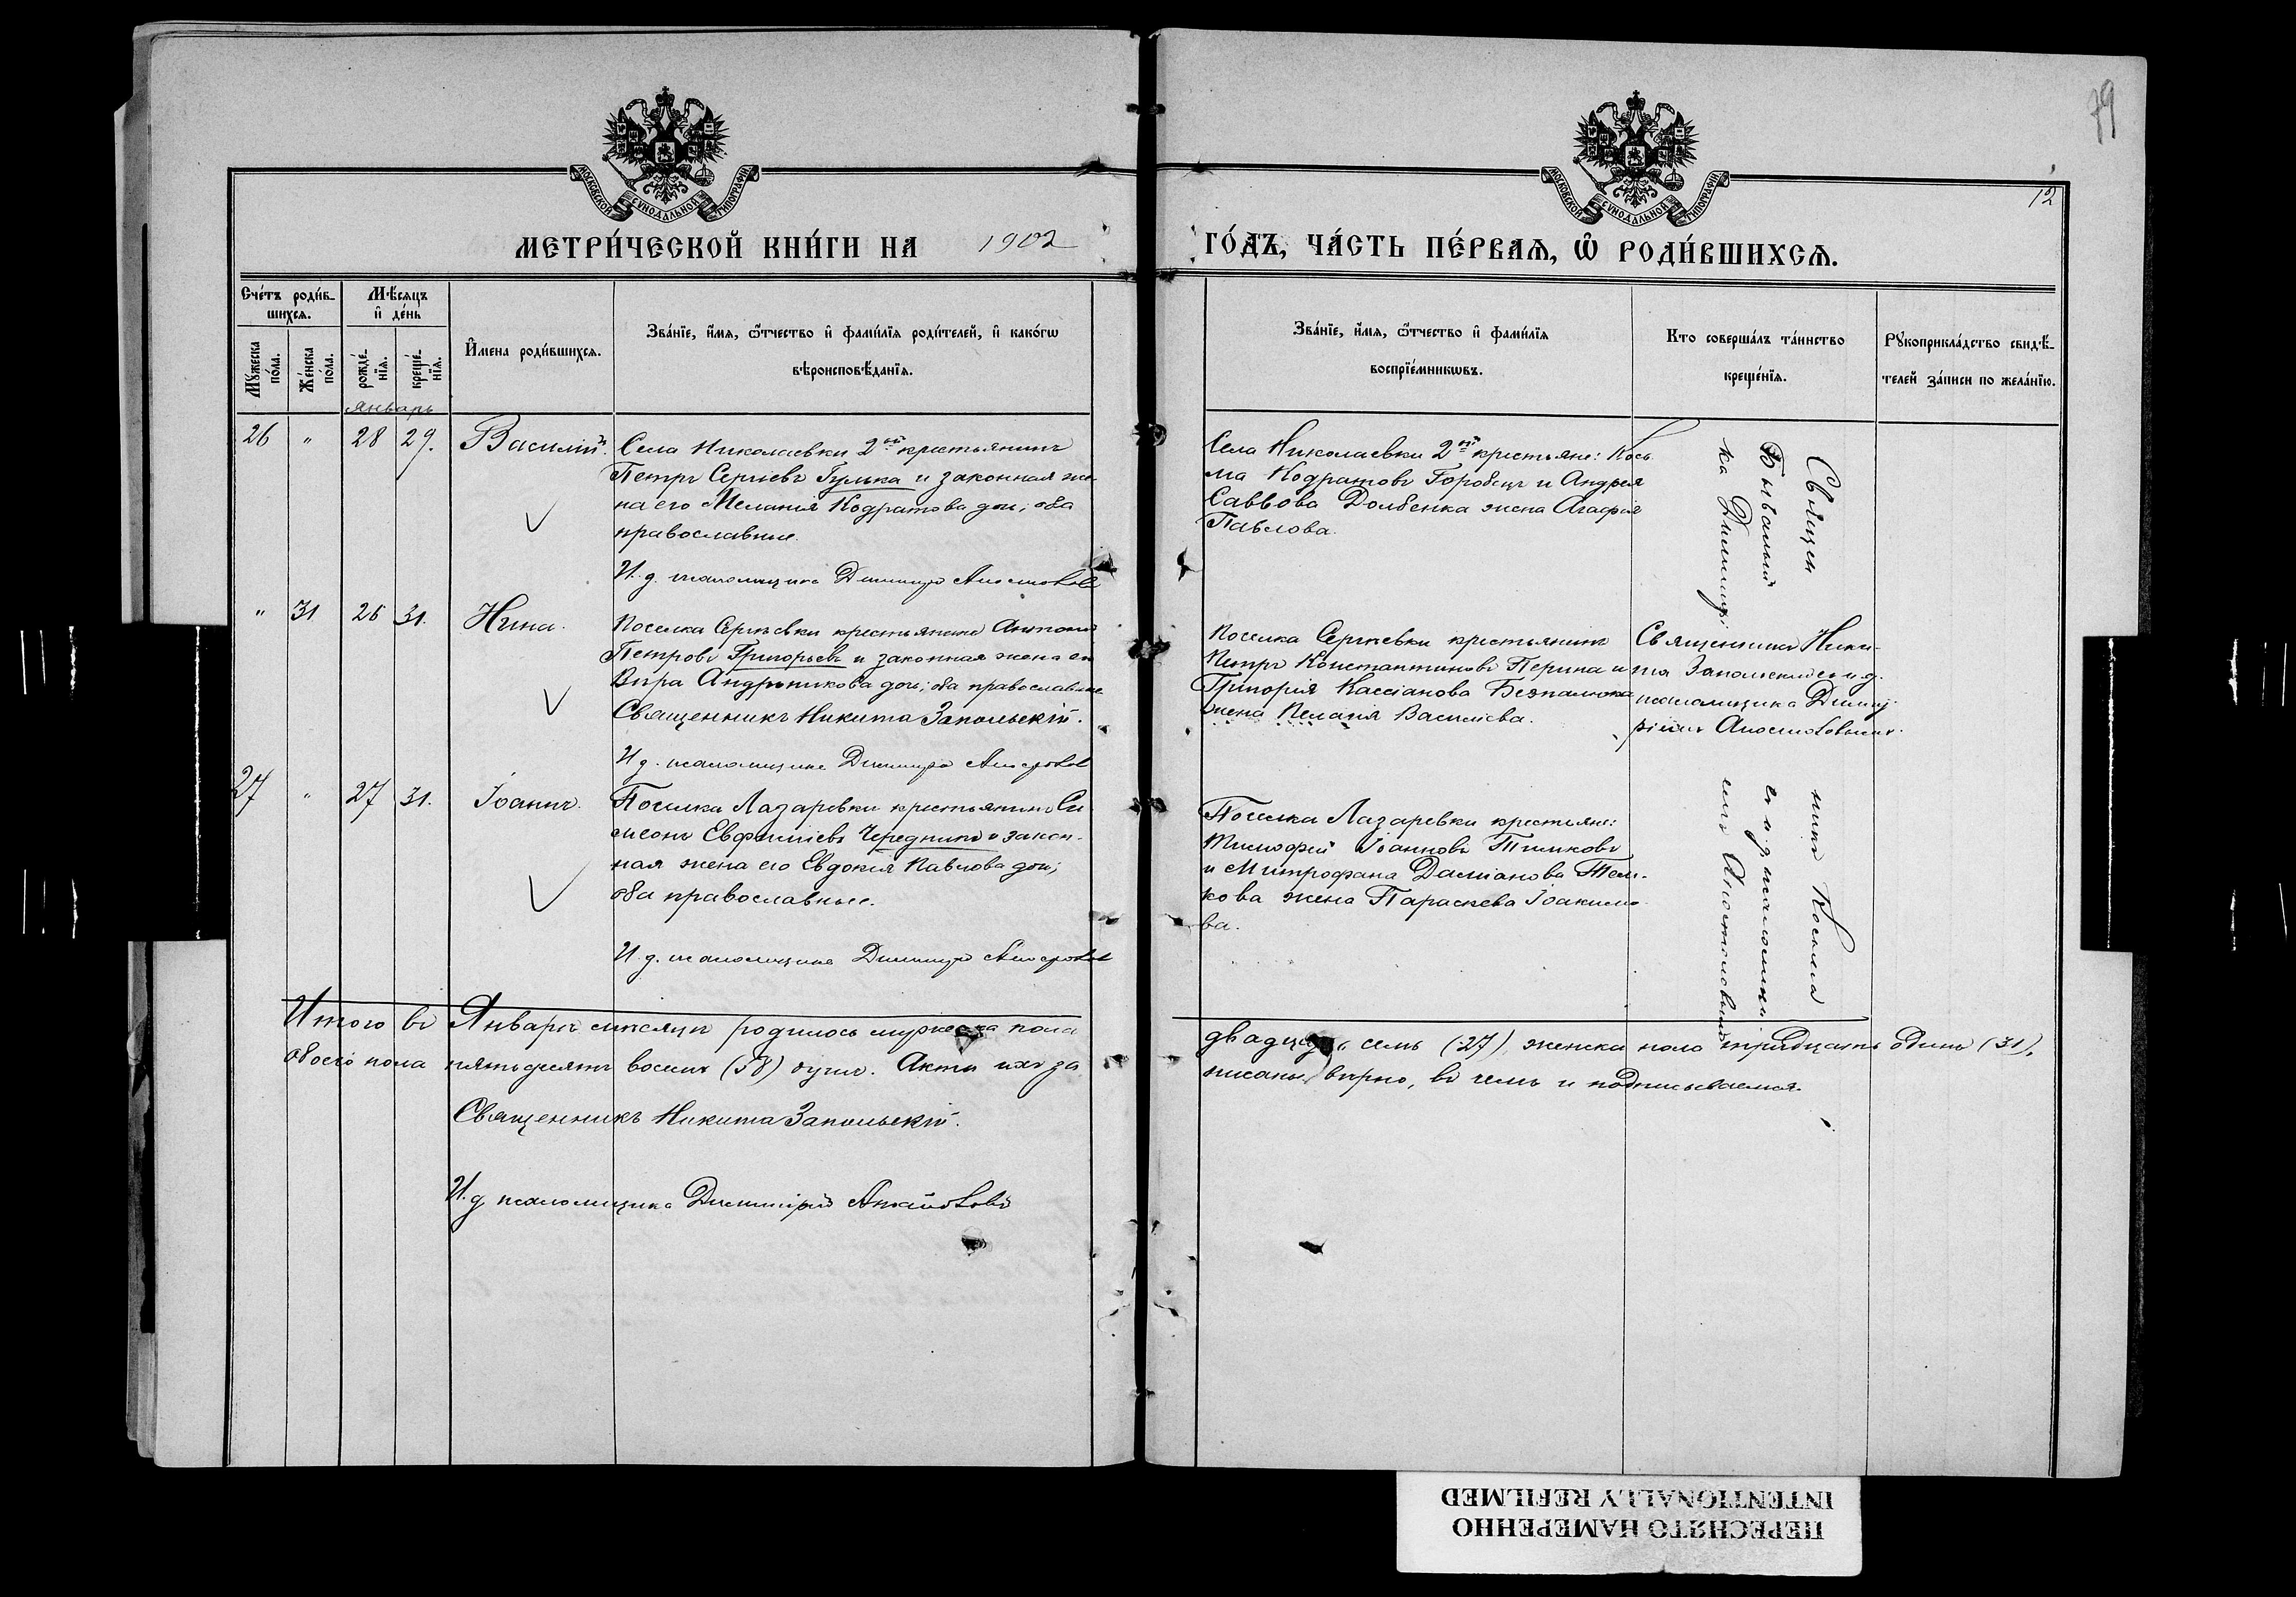 79
12
МОСКОВСКОЙ СУНОДАЛЬНОЙ ТИПОГРАФІИ
МОСКОВСКОЙ СУНОДАЛЬНОЙ ТИПОГРАФІИ
МЕТРИ́ЧЕСКОЙ КНИ́ГИ НА 1902
ГО́ДЪ, ЧА́СТЬ ПЕ́РВАѦ, Ѡ҆ РОДИ́ВШИХСѦ.
Сче́тъ роди́в-
шихсѧ.
Мꙋ́жеска по́ла.
Же́нска по́ла.
Мѣ́сѧцъ
и҆ де́нь
рожде́-нїѧ.
креще́-нїѧ.
Январь
И҆́мена роди́вшихсѧ.
Зва́нїе, и҆́мѧ, ѻ҆́тчество и҆ фами́лїѧ роди́телей, и҆ како́гѡ
вѣроисповѣ́данїѧ.
Зва́нїе, и҆́мѧ, ѻ҆́тчество и҆ фами́лїѧ
воспрїе́мникѡвъ.
Кто соверша́лъ та́инство
креще́нїѧ.
Рꙋкоприкла́дство свидѣ́-
телей за́писи по жела́нїю.
26 " 28 29. Василій.
Села Николаевки 2ой крестьянинъ
Петръ Сергіевъ Гулька и законная же-
на его Меланія Кодратова дочь; оба
православные.
И. д. псаломщика Димитрій Апостоловъ
Села Николаевки 2ой крестьяне: Кось
ма Кодратовъ Горобецъ и Андрея
Саввова Долбенка жена Агафія
Павлова.
" 31 26 31. Нина.
Поселка Сергѣевки крестьянинъ Антоній
Петровъ Григорьевъ и законная жена его
Вѣра Андроникова дочь; оба православные
Священникъ Никита Запольскій.
И. д. псаломщика Димитрій Апостоловъ
Поселка Сергѣевки крестьянинъ
Петръ Константиновъ Перина и
Григорія Кассіанова
жена Пелагія Василіева.
Священникъ Ники-
та Запольскій съ и. д.
псаломщика Димит-
ріемъ Апостоловымъ.
27 " 27 31. Іоаннъ.
Поселка Лазаревки крестьянинъ Си-
меонъ Евфиміевъ Чередникъ и закон-
ная жена его Евдокія Павлова дочь;
оба православные.
И. д. псаломщика Димитрій Апостоловъ
Поселка Лазаревки крестьяне:
Тимофей Іоанновъ
и Митрофана Даміанова
кова жена Параскева Іоакимо-
ва.
Священникъ Косьма
Бывалый съ и. д. псаломщи-
ка Димитріемъ Апостоловымъ
Итого въ Январѣ мѣсяцѣ родилось мужеска пола
двадцать семь (27), женска пола тридцать одинъ (31),
обоего пола пятьдесятъ восемь (58) душъ. Акты ихъ за
писаны вѣрно, въ чемъ и подписываемся.
Священникъ Никита Запольскій.
И. д. псаломщика Димитрій Апостоловъ
ПЕРЕСНЯТО НАМЕРЕННО
INTENTIONALLY REFILMED